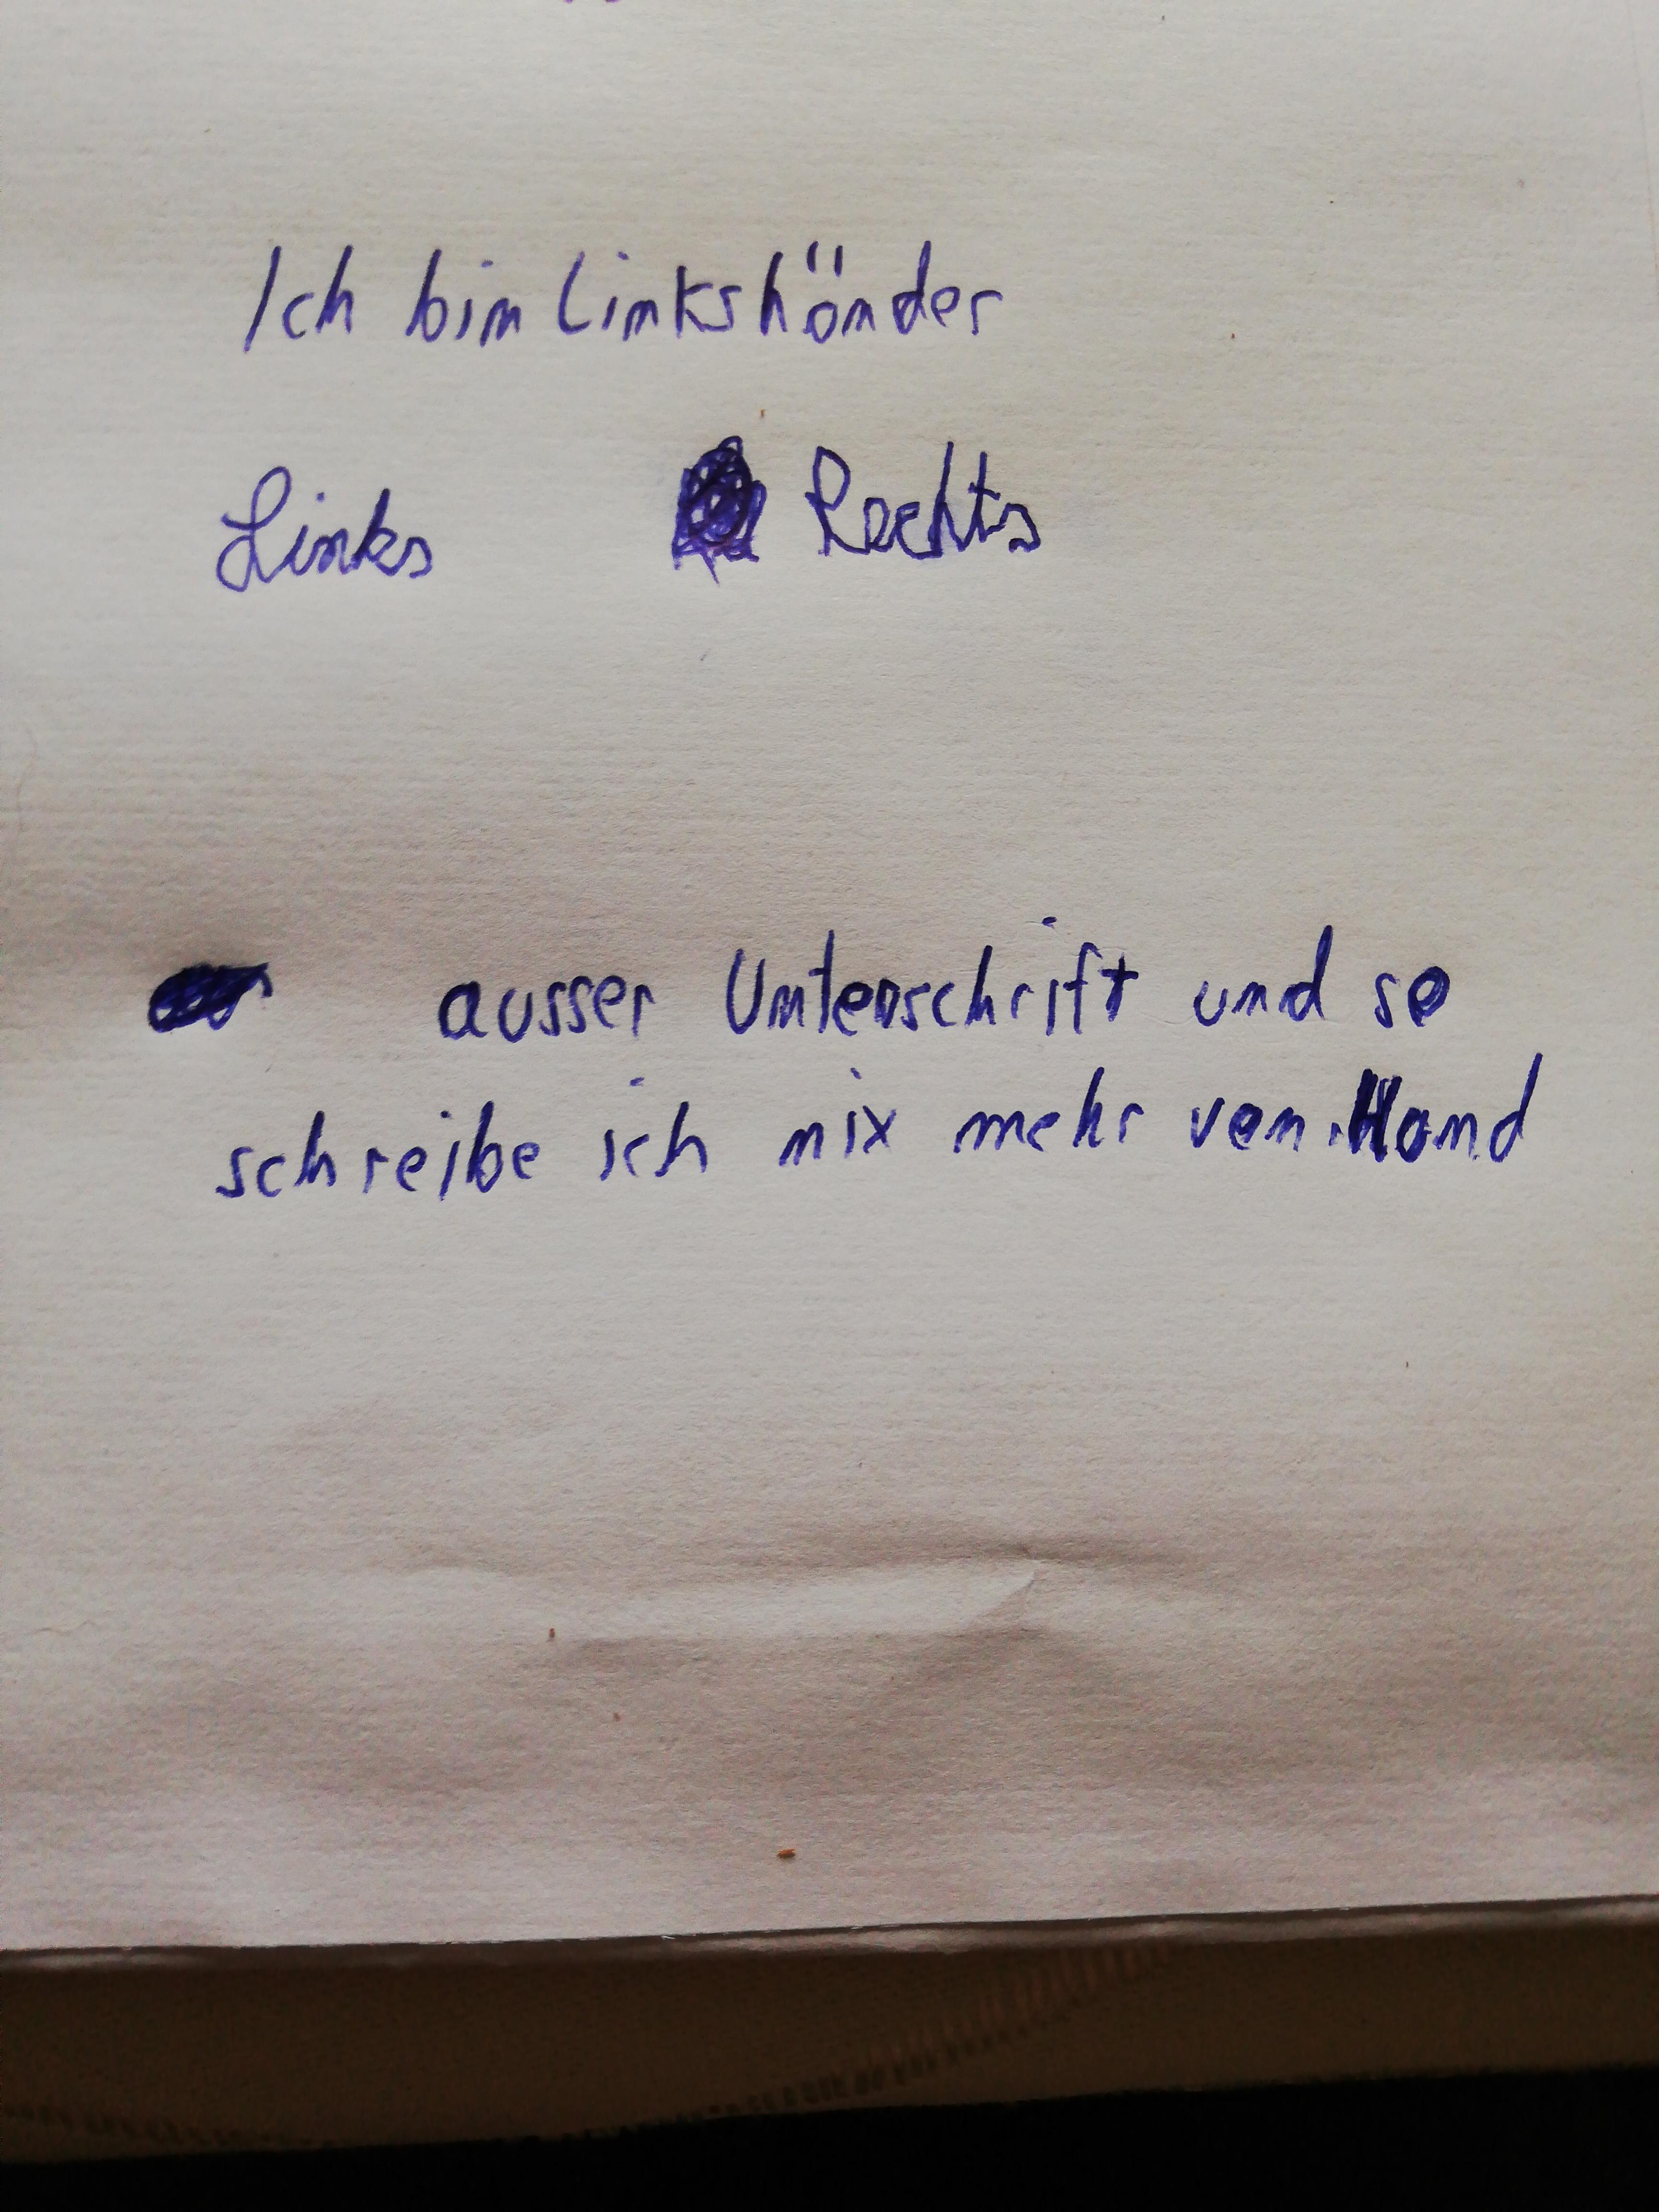 Ich bin Linkshänder
Links Rechts
ausser Unterschrift und so
schreibe ich nix mehr von Hand